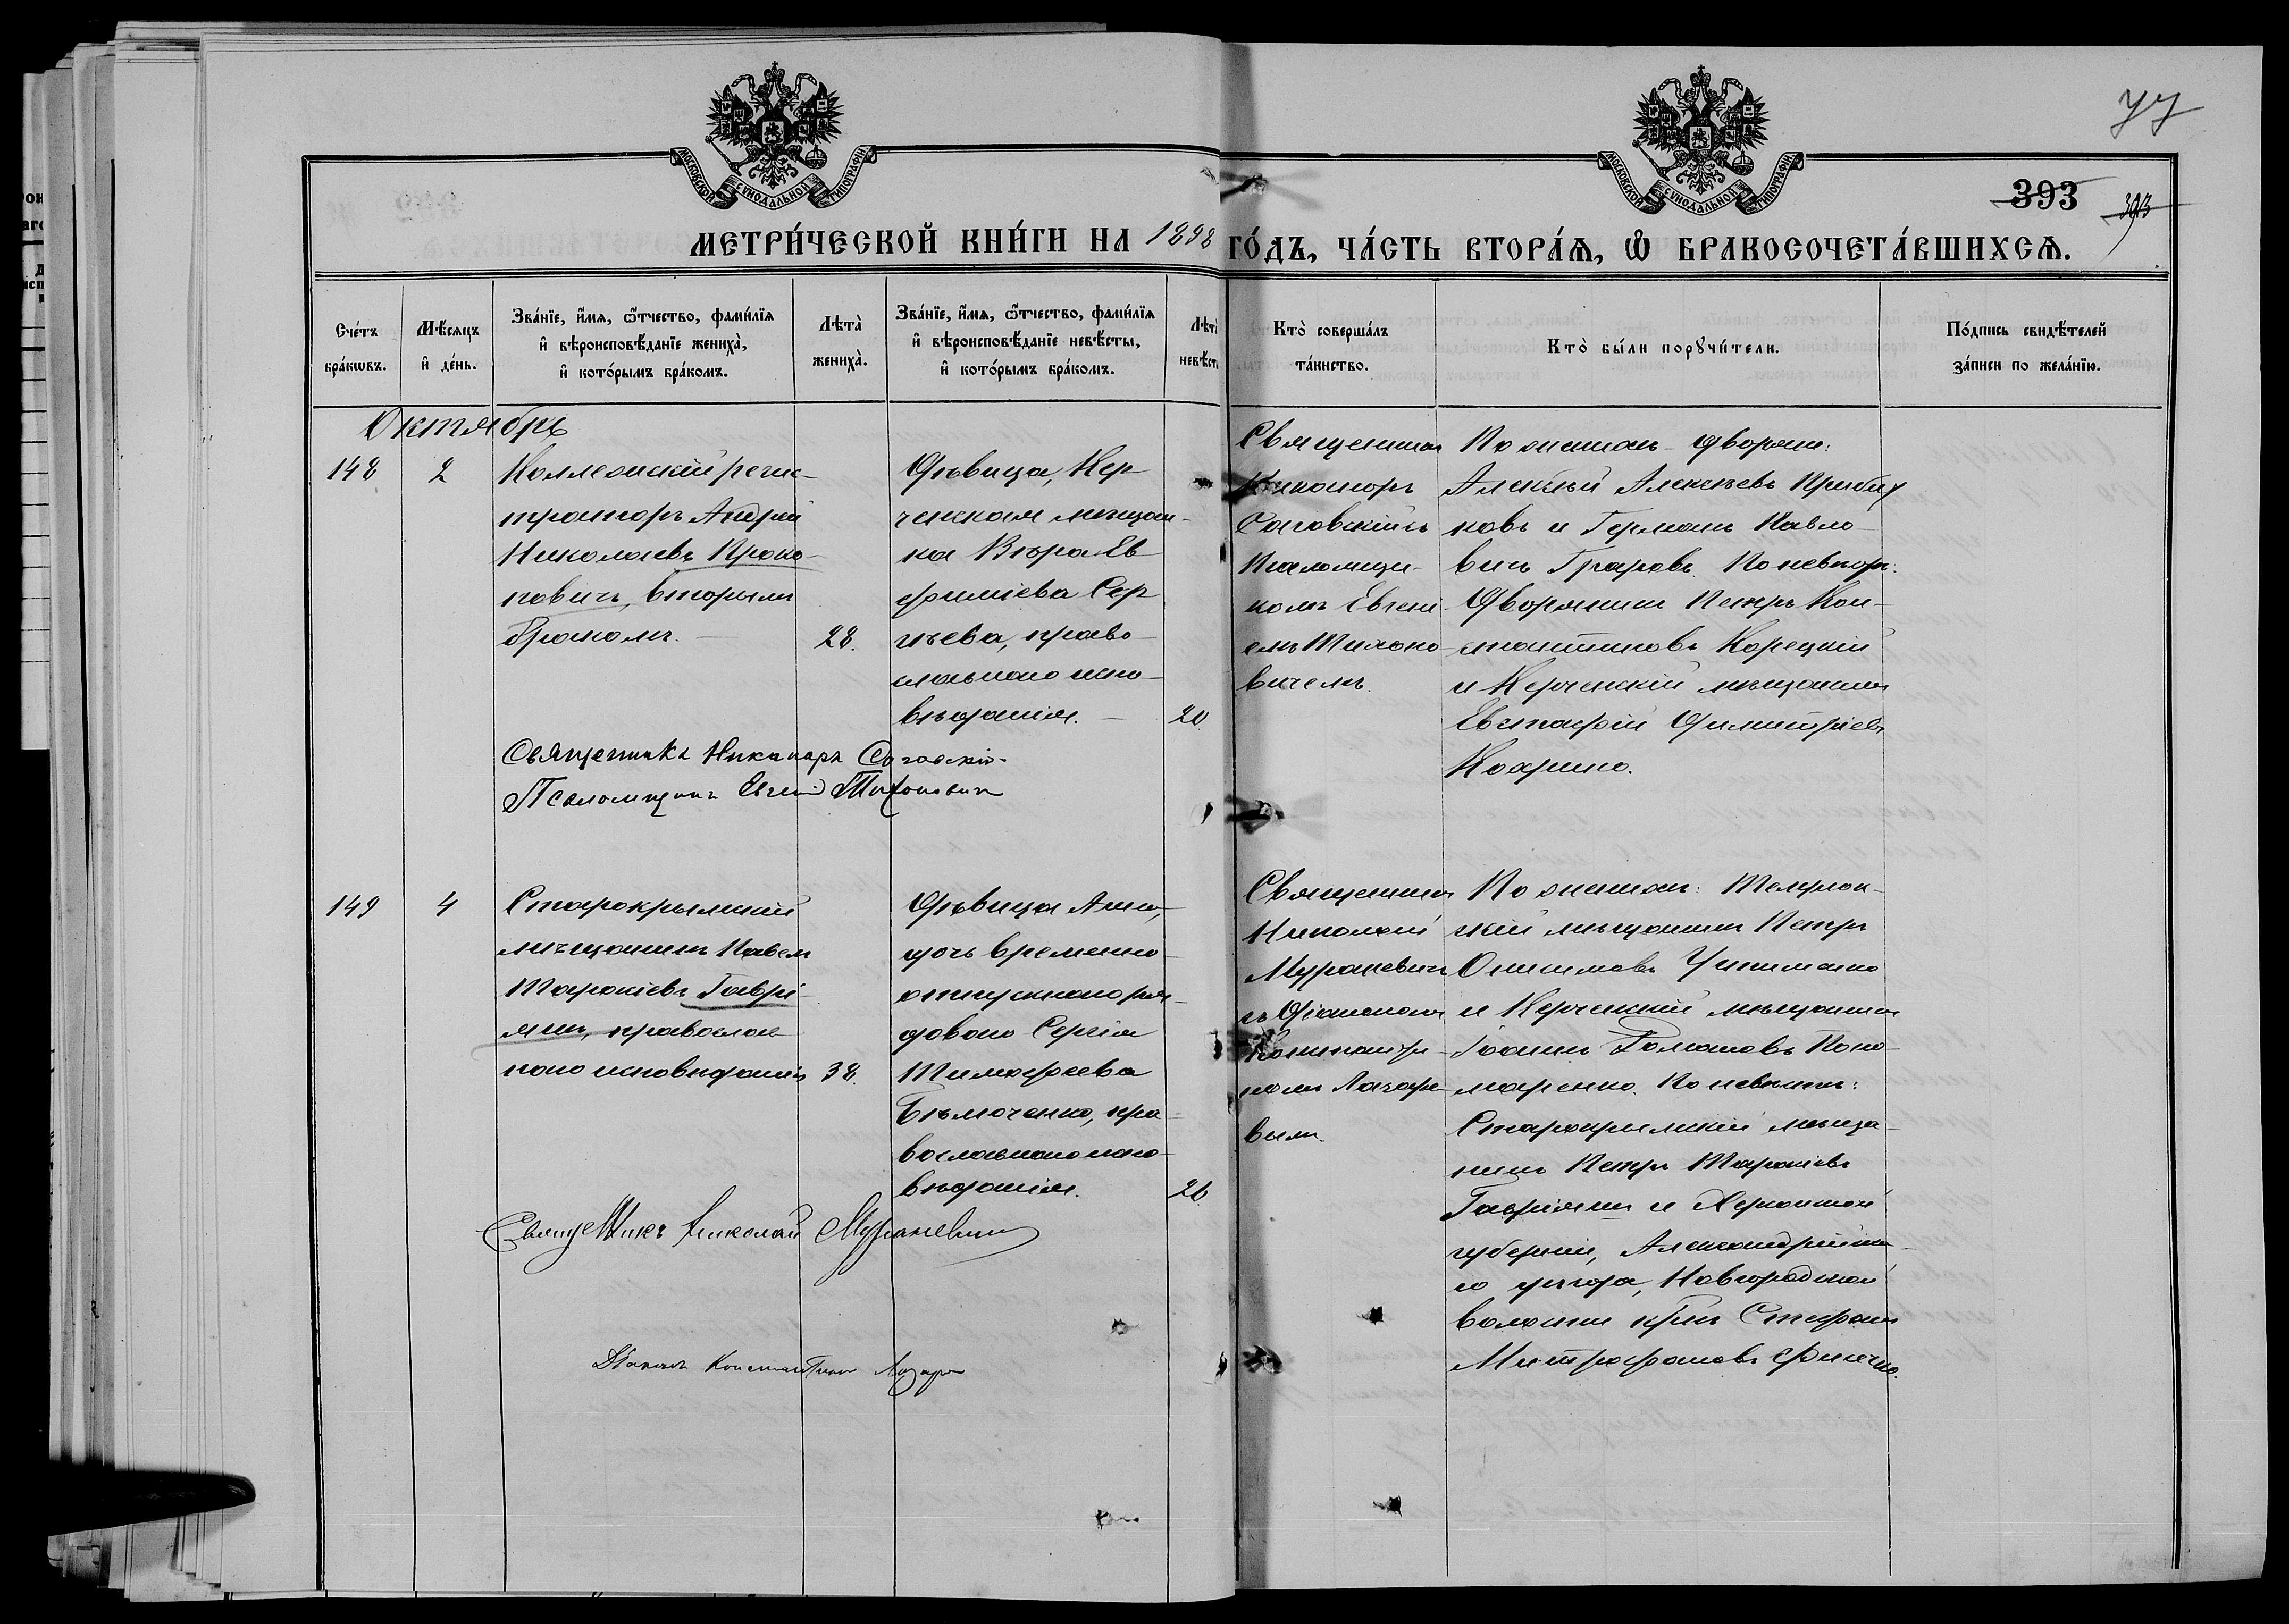 77
МОСКОВСКОЙ СѴНОДАЛЬНОЙ ТИПОГРАФІИ
МОСКОВСКОЙ СѴНОДАЛЬНОЙ ТИПОГРАФІИ
393
393
МЕТРИ́ЧЕСКОЙ КНИ́ГИ НА 1898 ГО́ДЪ, ЧА́СТЬ ВТОРА́Ѧ, Ѡ БРАКОСОЧЕТА́ВШИХСѦ.
Сче́тъ бра́кωвъ.
Мѣ́сяцъ и де́нь.
Зва́нїе, и́мя, ѻ́тчество, фами́лїя и вѣроисповѣ́данїе жениха̀, и кото́рымъ бра́комъ.
Лѣта̀ жениха̀.
Зва́нїе, и́мя, ѻ́тчество, фами́лїя и вѣроисповѣ́данїе невѣ́сты, и кото́рымъ бра́комъ.
Лѣта̀ невѣ́сты
Кто̀ соверша́лъ та́инство.
Кто̀ бы́ли порꙋчи́тели.
По́дпись свидѣ́телей за́писи по жела́нїю.
Октябрь
148
2
Коллежскій регис-
траторъ Андрей
Николаевъ Проко-
повичъ, вторымъ
бракомъ.
28.
Дѣвица, Кер-
ченская мѣщан-
ка Вѣра Ев
фиміева Сер
гѣева, право-
славнаго испо-
вѣданія.
20
Священникъ
Никаноръ
Саговскій съ
Псаломщи-
комъ Евгені-
емъ Тихоно-
вичемъ.
По женихѣ дворяне:
Алексѣй Алексѣевъ
новъ и Германъ Павло-
вичъ По невѣстѣ:
Дворянинъ Петръ Кон-
стантиновъ Корецкій
и Керченскій мѣщанинъ
Евстафій Димитріевъ
Священникъ Никаноръ Саговскій
Псаломщикъ Евгеній Тихоновичъ
149
4
Старокрымскій
мѣщанинъ Павелъ
Тарасіевъ Гаври-
шъ, православ-
наго исповѣданія
38.
Дѣвица Анна,
дочь временно-
отпускнаго ря-
доваго Сергія
Тимофеева
Бѣлоченко, пра-
вославнаго испо-
вѣданія.
26
Священникъ
Николай
Мураневичъ
съ Діакономъ
Константи-
номъ Лазаре-
вымъ.
По женихѣ:
мѣщанинъ Петръ
Онисимовъ
и Керченскій мѣщанинъ
Іоаннъ Романовъ Поно-
маренко. По невѣстѣ:
Старокрымскій мѣща-
нинъ Петръ Тарасіевъ
и Херсонской
губерніи, Александрійска-
го уѣзда, Новгородской
волости кр-нъ Стефанъ
Митрофановъ
Священникъ Николай Мураневичъ
Діаконъ Константинъ Лазаревъ